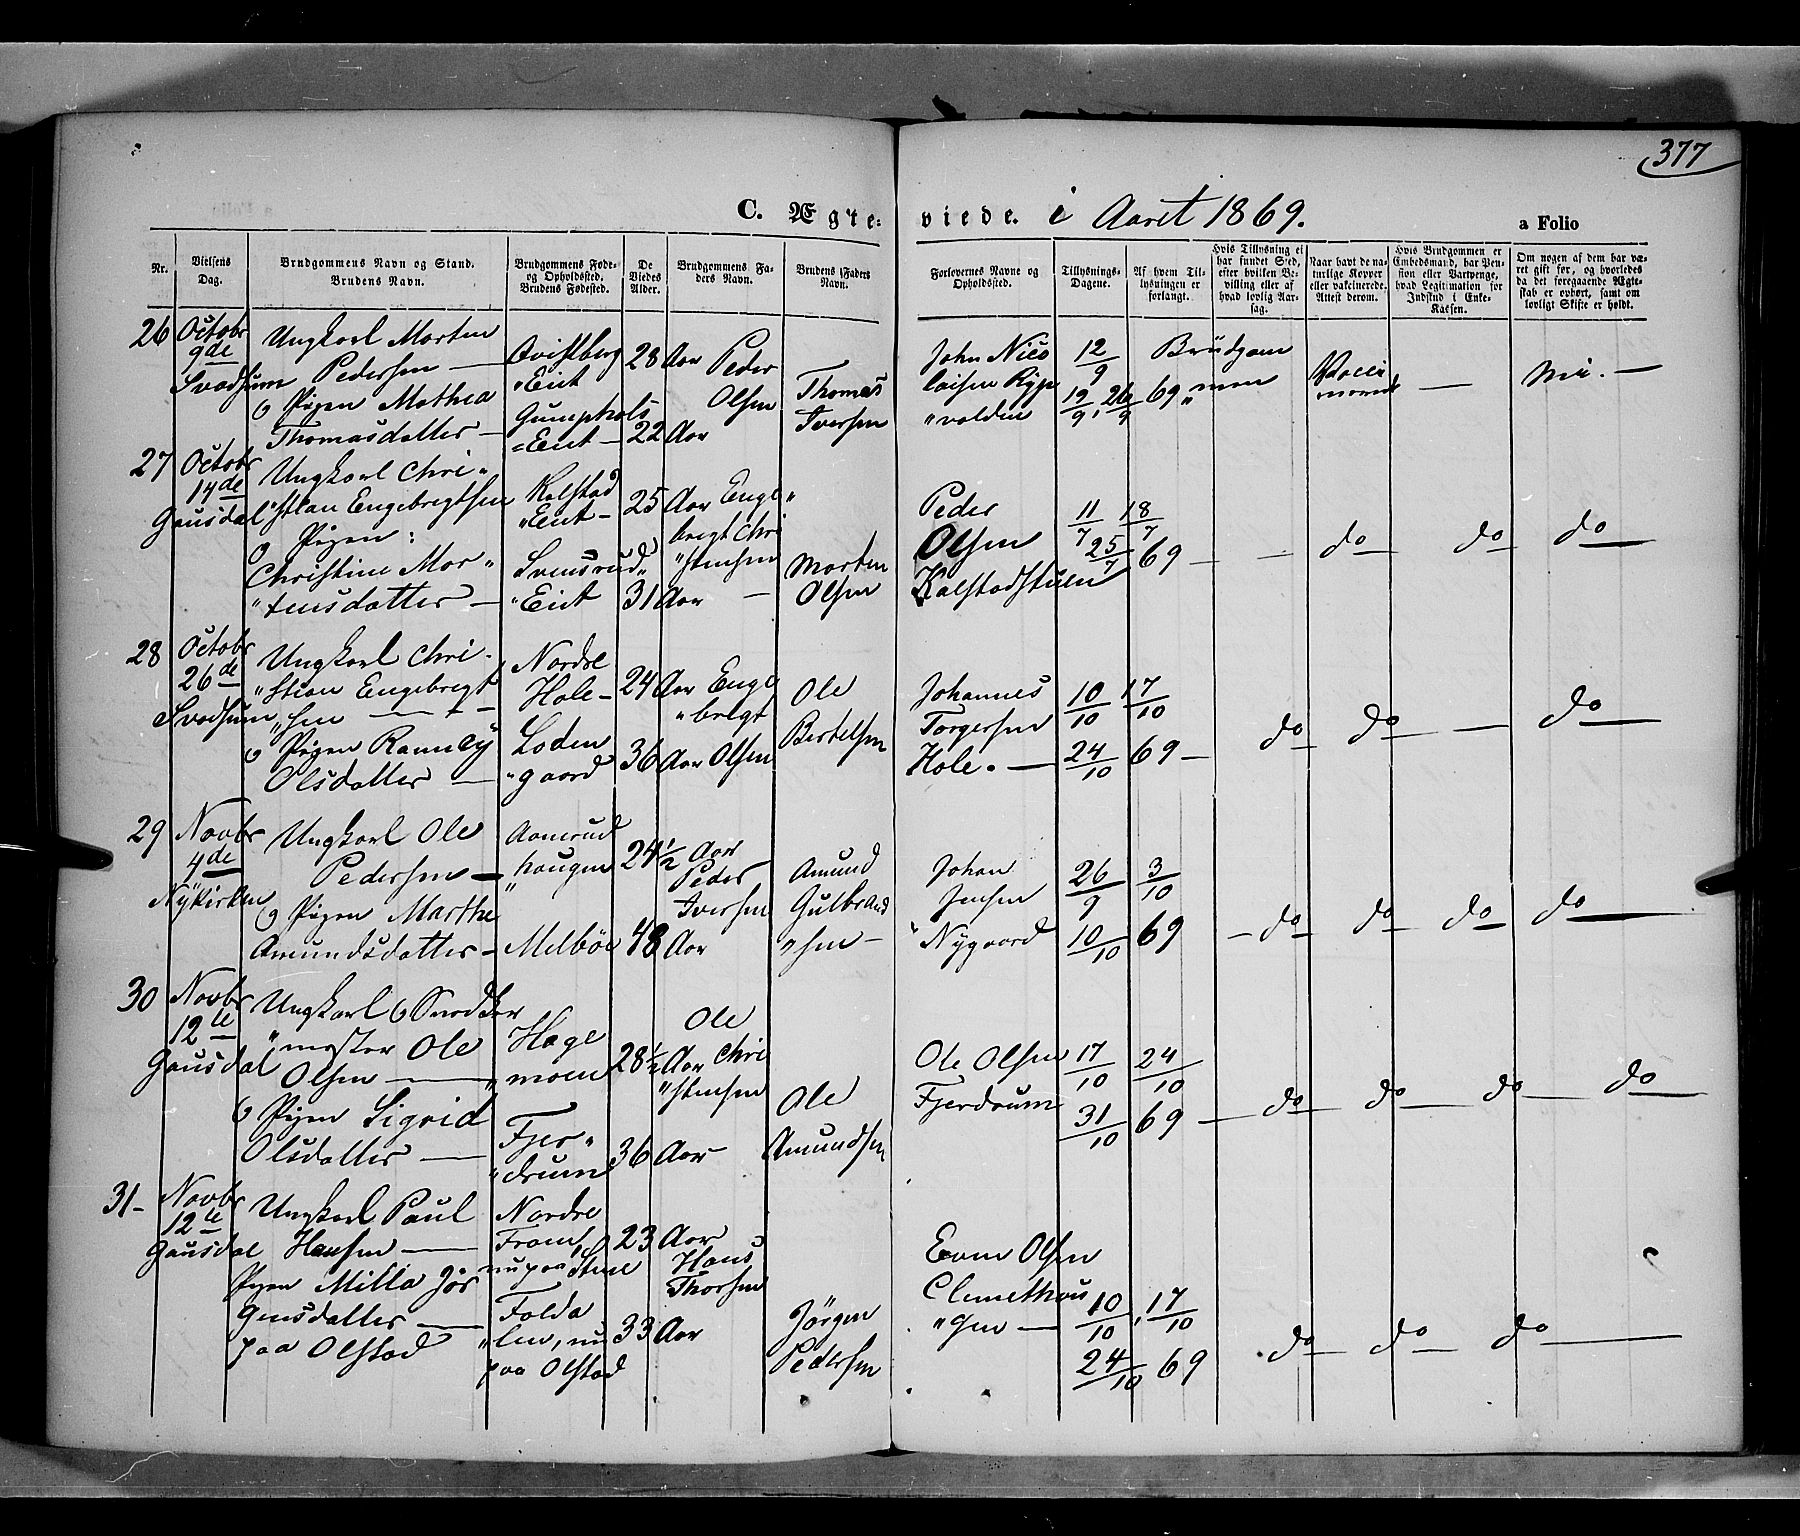 377
C. Ægte-viede. i Aaret 1869.
a Folio
Nr.
Vielsens Dag.
Brudgommens Navn og Stand. Brudens Navn.
Brudgommens Føde- og Opholdssted. Brudens Fødested.
De Viedes Alder.
Brudgommens Faders Navn.
Brudens Faders Navn.
Forlovernes Navne og Opholdssted.
Tillysnings-Dagene.
Af hvem Tillysningen er forlangt.
Hvis Tillysning ei har fundet Sted, efter hvilken Bevilling eller af hvad lovlig Aarsag.
Naar havt de naturlige Kopper eller vakcinerede. Attest derom.
Hvis Brudgommen er Embedsmand, har Pension eller Vartpenge, hvad Legitimation for Indskud i Enke-Kassen.
Om nogen af dem har været gift før, og hvorledes da det foregaaende Ægteskab er ophørt, samt om lovligt Skifte er holdt.
26 Octobr 9de Svadsum
Ungkarl Morten
Pedersen —
Qvistberg
"Eiet
28 Aar
Peder
Olsen
& Pigen Mathea
Thomasdatter —
=Eiet — 22 Aar
Thomas
Iversen
John Nico
laisen
"volden
12/9
19/9, 26/9 69
Brüdgom
"men
—
27 Octobr 14de Gausdal
Ungkarl Chri"
"stian Engebregtsen
Kalstad
"Eiet —
25 Aar
Enge"
bregt Chri
"stensen
& Pigen:
Christine Mor"
"tensdatter —
Svensrud"
"Eiet
31 Aar —
Morten
Olsen
Peder
Olsen
Kalstadstuen
11/7 18/7
25/7 69 —
— do — do do
28 Octobr 26de Svadsum
Ungkarl Chri-
"stian Engebregt
"sen —
Nordre
Hole —
24 Aar
Enge
"bregt
Olsen
& Pigen
Olsdatter —
Loden
"gaard
36 Aar
Ole
Bertelsen
Johannes
Torgersen
Hole. —
10/10 17/10
24/10 69 —
do do — do
29 Novbr 4de Nykirken
Ungkarl Ole
Pedersen —
"haugen
24½ Aar
Peder
Iversen
& Pigen Marthe
Amundsdatter —
Melbøe
48 Aar
Amund
Gulbrand
"sen —
Johan
Jensen
Nygaard
26/9 3/10
10/10 69
— do do do do
30 Novbr 12te Gausdal
Ungkarl & Snedker
"mester Ole
Olsen —
Hage
"moen
28½ Aar
Ole
Chri
"stensen
& Pigen Sigrid
Olsdatter —
Fjer"
"drum
36 Aar
Ole
Amundsen
Ole Olsen
Fjerdrum
17/10 24/10
31/10 69 —
do do do do
31 — Novbr 12te Gausdal
Ungkarl Paul
Hansen —
Nordre
23 Aar
Hans
Thorsen
Pigen Milla Jør
gensdatter —
paa Olstad
Folda
"len, nu
paa Olstad
33 Aar
Jørgen
Pedersen
Even Olsen
"gen —
10/10, 17/10
24/10 69
do do do —